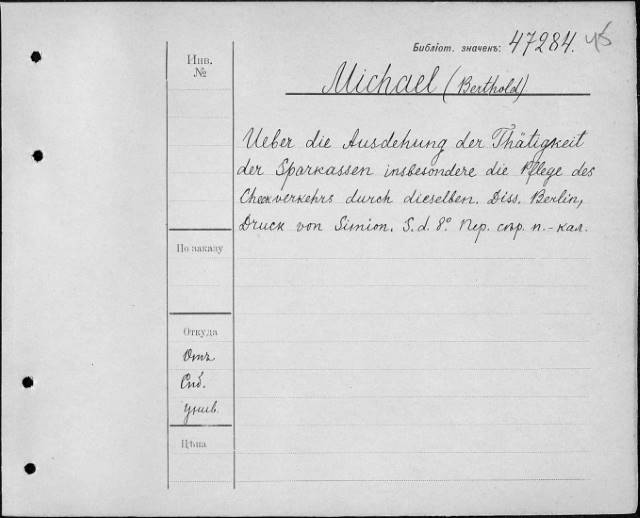 Библіот. значекъ: 47284. 45
Инв.
№
Michael (Berthold)
Ueber die Ausdehung der Thätigkeit
der Sparkassen insbesondere die Pflege des
Checkverkehrs durch dieselben. Diss. Berlin,
Druck von Simion. S. d. 8° Пер. сѣр. п.-кал.
По заказу
Откуда
Отъ
Спб.
унив.
Цѣна